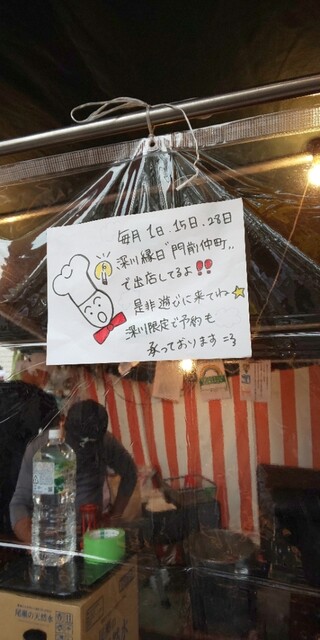 毎月1日、15日、28日
深川縁日"門前仲町"
で出店してるよ!!
是非遊びに来てね☆
深川限定で予約も
承っております =3
尾瀬の天然水